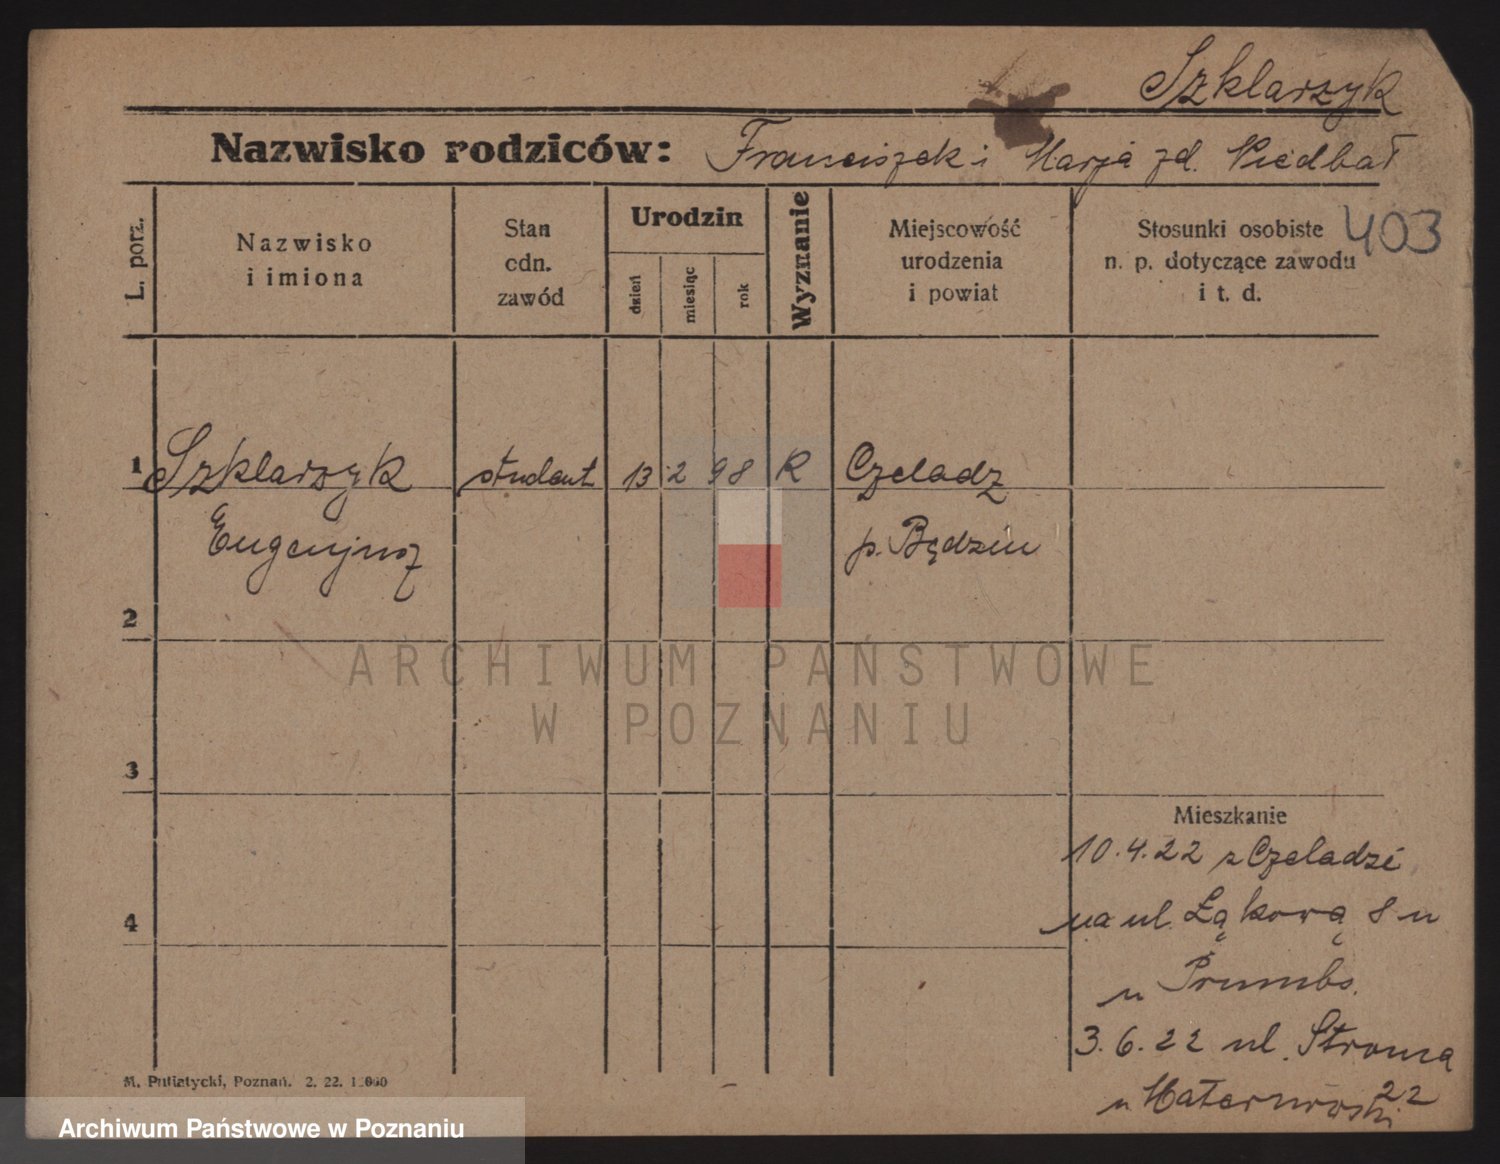 Szklarzyk
Nazwisko rodziców: Franciszek i Marja zd. Niedbał
403
L. porz.
Nazwisko
i imiona
Stan
edn.
zawód
Urodzin
dzień
miesiąc
rok
Wyznanie
Miejscowość
urodzenia
i powiat
Stosunki osobiste
n. p. dotyczące zawodu
i t. d.
1 Szklarzyk student 13 2 98 R Czeladz
Eugenjusz p. Będzin
2
ARCHIWUM PAŃSTWOWE
W POZNANIU
3
Mieszkanie
10.4.22 z Czeladzi
4
na ul. Łąkową 8 u
u Prumbs.
3.6.22 ul. Stroma
22
u
M. Putiatycki, Poznań. 2. 22. 1.000
Archiwum Państwowe w Poznaniu